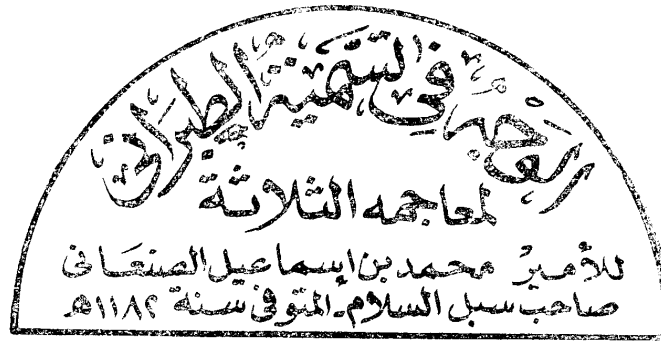 الوجه في تسمية الطبراني
لمعاجمه الثلاثة
للأمير محمد بن إسماعيل الصنعاني
صاحب سبل السلام - المتوفى سنة ١١٨٢هـ